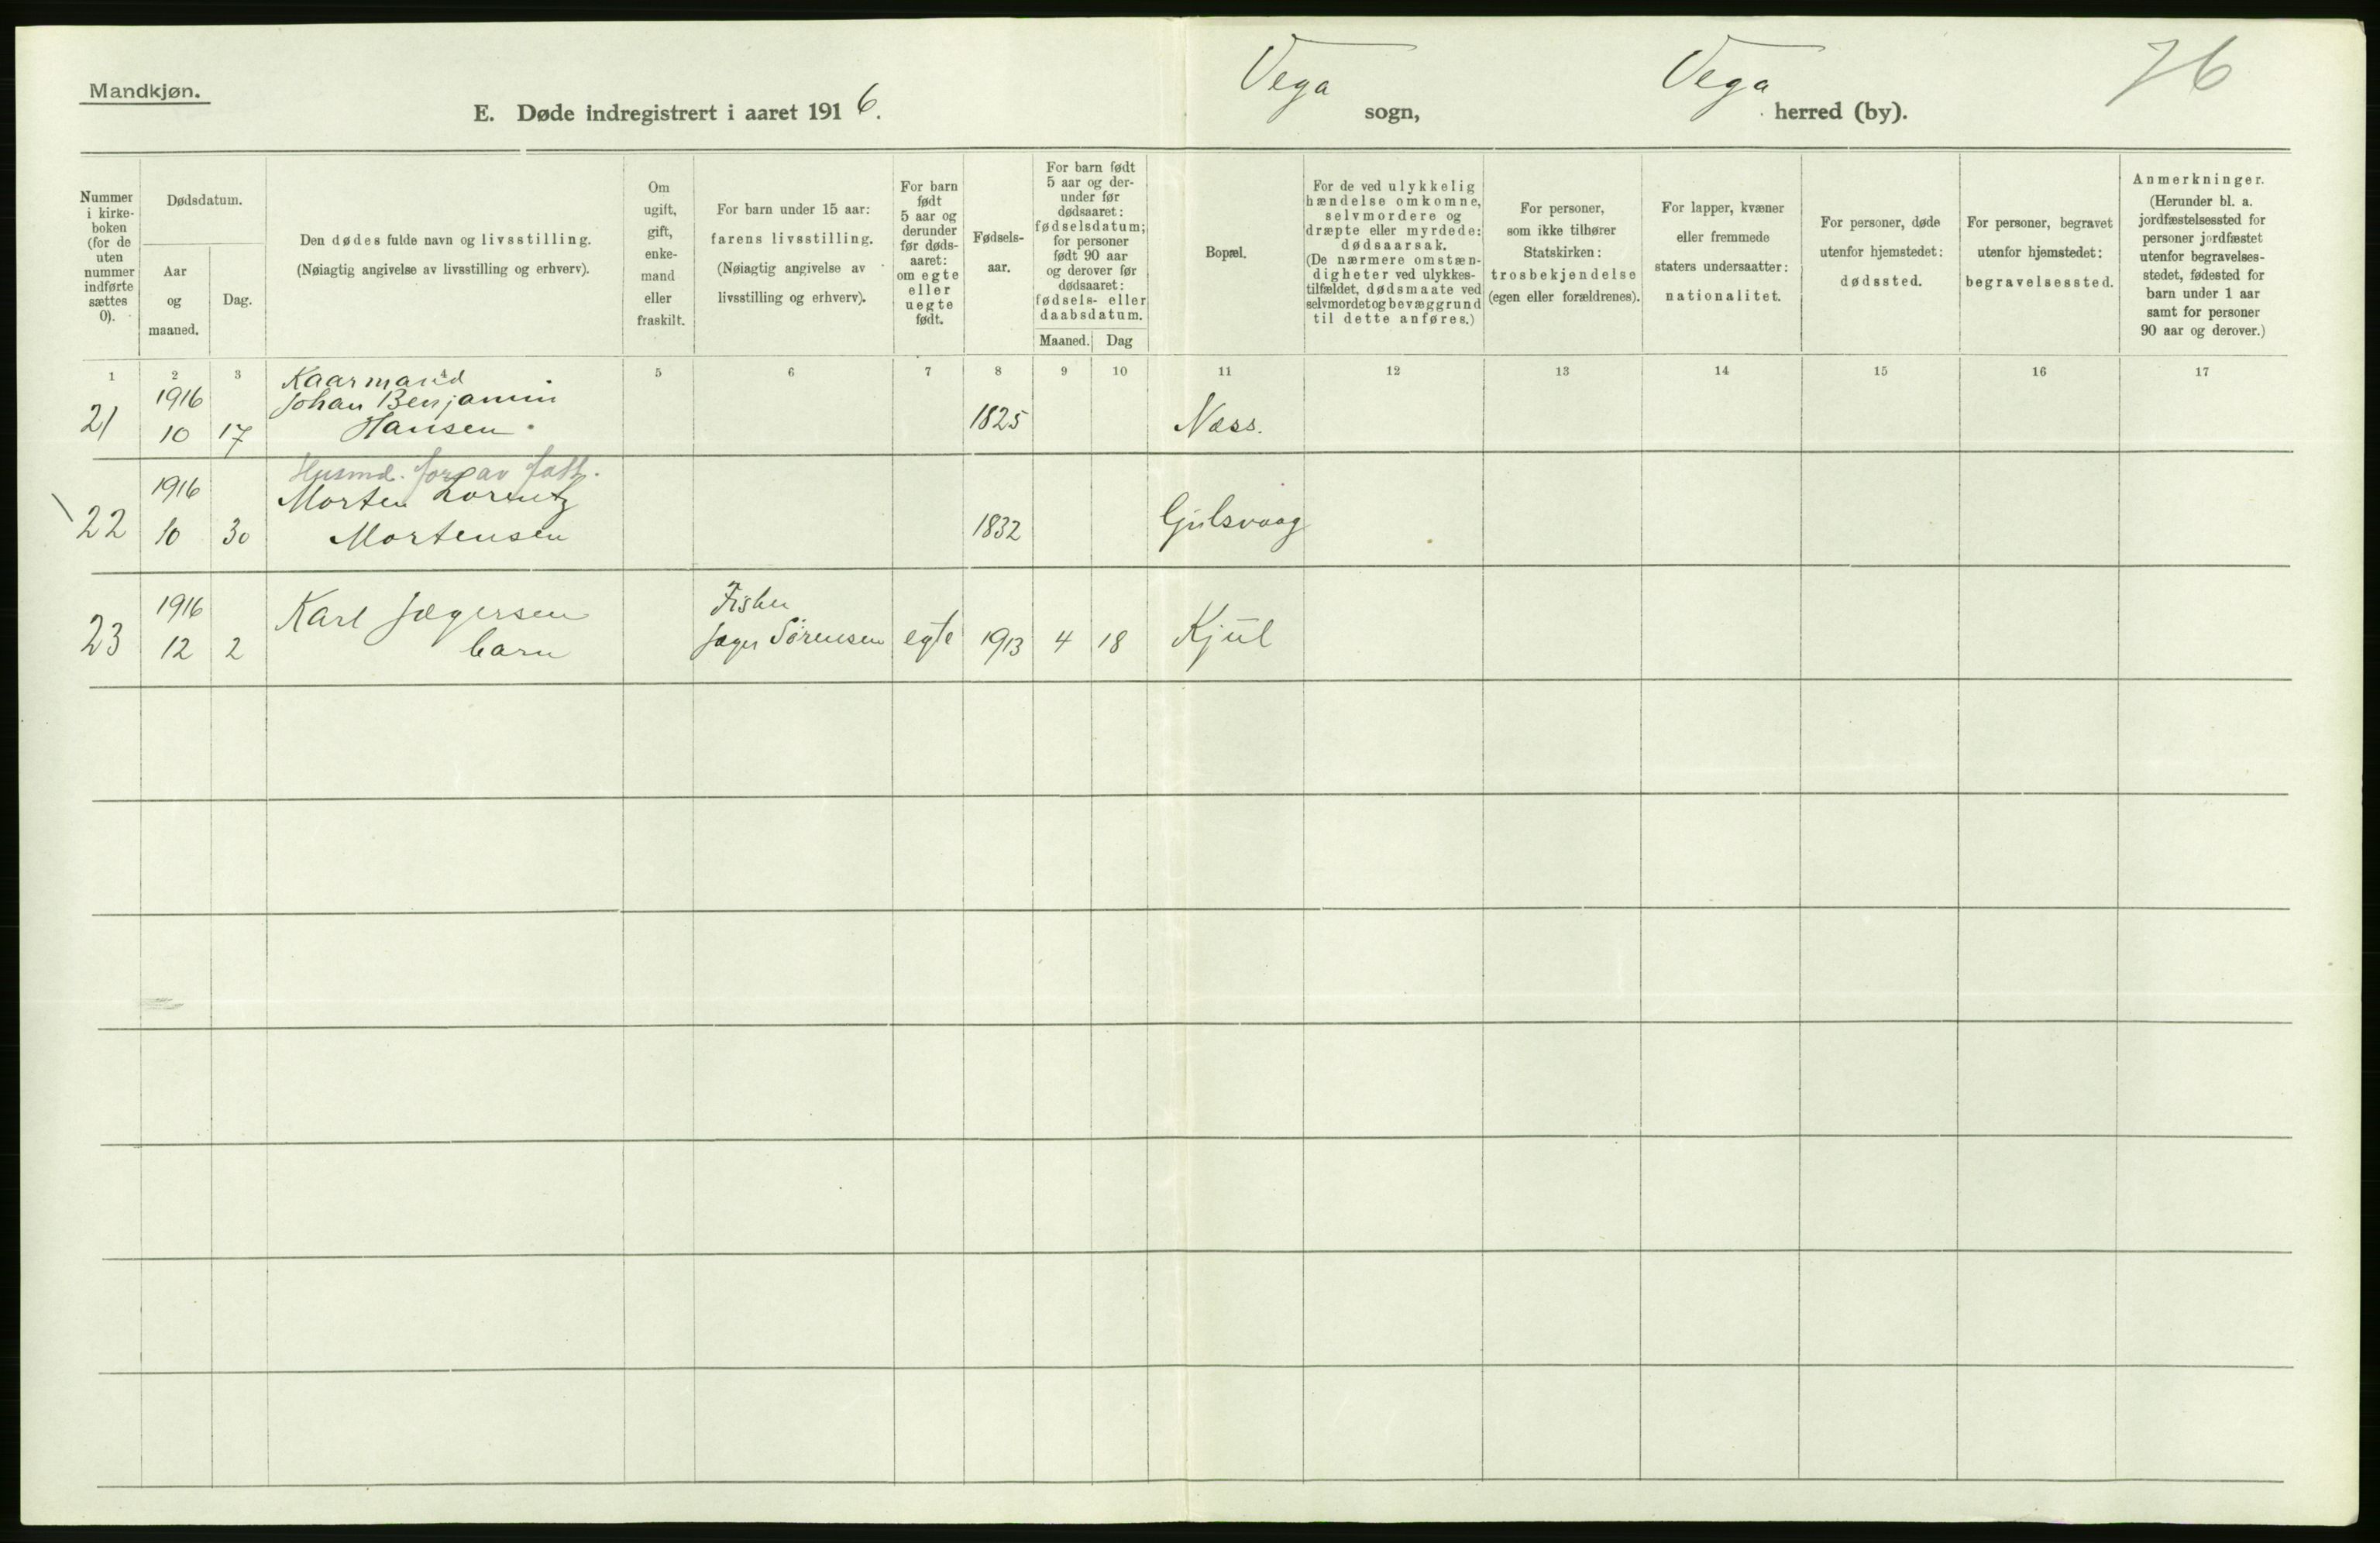 Mandkjøn.
E. Døde indregistrert i aaret 1916.
Vega sogn,
Vega herred (by).
76
Nummer
i kirke-
boken
(for de
uten
nummer
indførte
sættes
0).
Dødsdatum.
Aar
og
maaned.
Dag.
Den dødes fulde navn og livsstilling.
(Nøiagtig angivelse av livsstilling og erhverv).
Om
ugift,
gift,
enke-
mand
eller
fraskilt.
For barn under 15 aar:
farens livsstilling.
(Nøiagtig angivelse av
livsstilling og erhverv).
For barn
født
5 aar og
derunder
før døds-
aaret:
om egte
eller
uegte
født.
Fødsels-
aar.
For barn født
5 aar og der-
under før
dødsaaret:
fødselsdatum;
for personer
født 90 aar
og derover før
dødsaaret:
fødsels- eller
daabsdatum.
Maaned. Dag
Bopæl.
For de ved ulykkelig
hændelse omkomne,
selvmordere og
dræpte eller myrdede:
dødsaarsak.
(De nærmere omstæn-
digheter ved ulykkes-
tilfældet, dødsmaate ved
selvmordet og bevæggrund
til dette anføres.)
For personer,
som ikke tilhører
Statskirken:
trosbekjendelse
(egen eller forældrenes).
For lapper, kvæner
eller fremmede
staters undersaatter:
nationalitet.
For personer, døde
utenfor hjemstedet:
dødssted.
For personer, begravet
utenfor hjemstedet:
begravelsessted.
Anmerkninger.
(Herunder bl. a.
jordfæstelsessted for
personer jordfæstet
utenfor begravelses-
stedet, fødested for
barn under 1 aar
samt for personer
90 aar og derover.)
1 2 3 4 5 6 7 8 9 10 11 12 13 14 15 16 17
Kaarmand
1916 Johan Benjamin
21 10 17 Hansen 1825 Næss.
Husmd. fors. av fatt.
1916 Morten Lorentz
22 10 30 Mortensen 1832 Gulsvaag
1916 Karl Jægersen Fisker
23 12 2 barn Jæger Sørensen egte 1913 4 18 Kjul